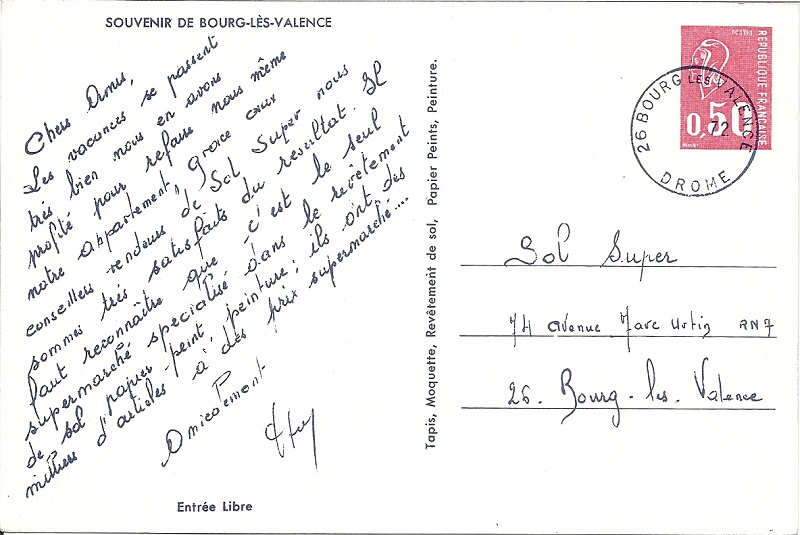 SOUVENIR DE BOURG-LÈS-VALENCE
Chers Amis,
Les vacances se passent
très bien nous en avons
profité pour refaire nous même
notre appartement, grace aux
conseillers vendeurs de Sol Super nous
sommes très satisfaits du resultat. Il
faut reconnaître que c'est le seul
supermarché specialisé dans le revêtement
de sol papier-peint, peinture; ils ont des
milliers d'articles à des prix supermarché....
Amicalement
Entrée Libre
Tapis, Moquette, Revêtement de sol, Papier Peints, Peinture.
REPUBLIQUE FRANÇAISE
POSTES
0,50
26 BOURG LES VALENCE
72
DROME
Sol Super
74 avenue Marc Urtin RN7
26. Bourg-les-Valence